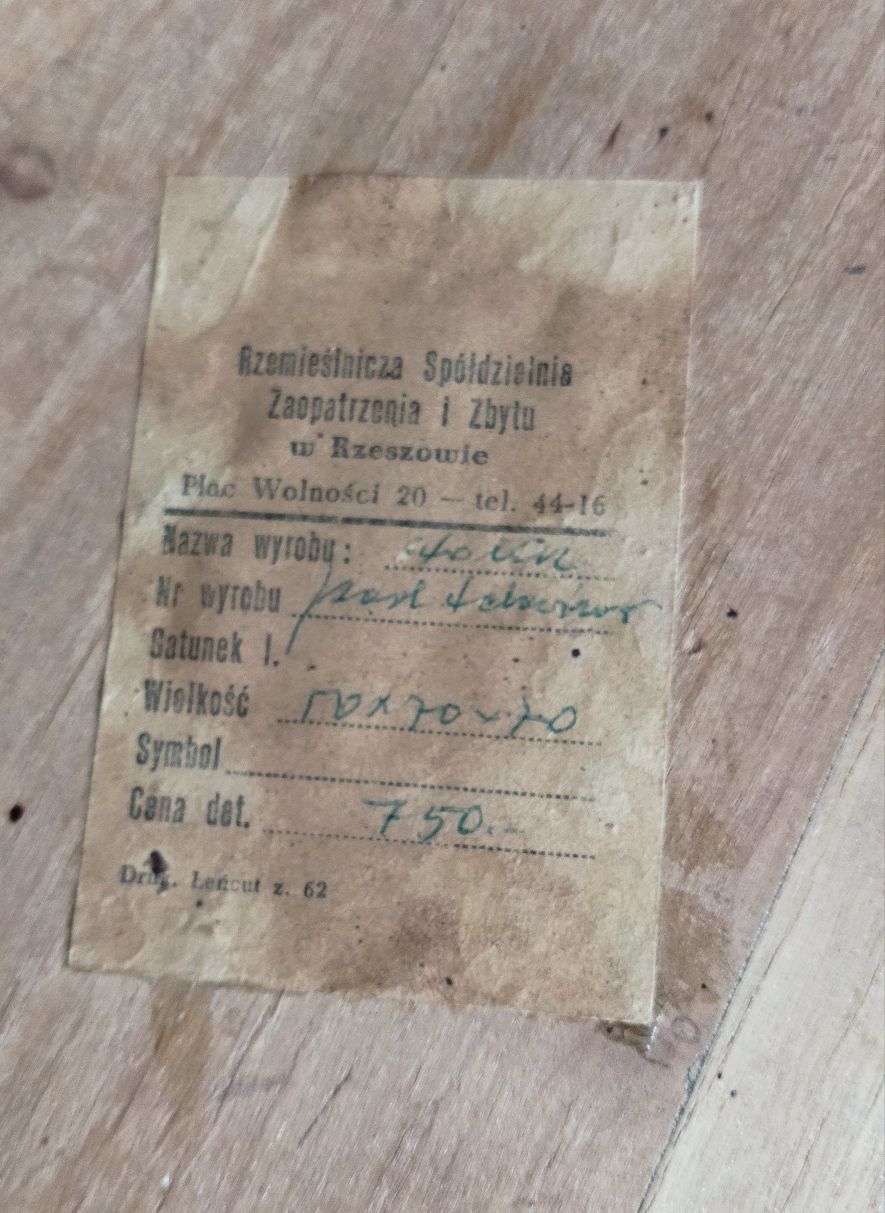 Rzemieślnicza Spółdzielnia
Zaopatrzenia i Zbytu
w Rzeszowie
Plac Wolności 20 — tel. 44-16
Nazwa wyrobu: stolik
Nr wyrobu pod telewizor
Gatunek I.
Wielkość 50x70x70
Symbol
Cena det. 750.-
Druk. Łańcut z. 62